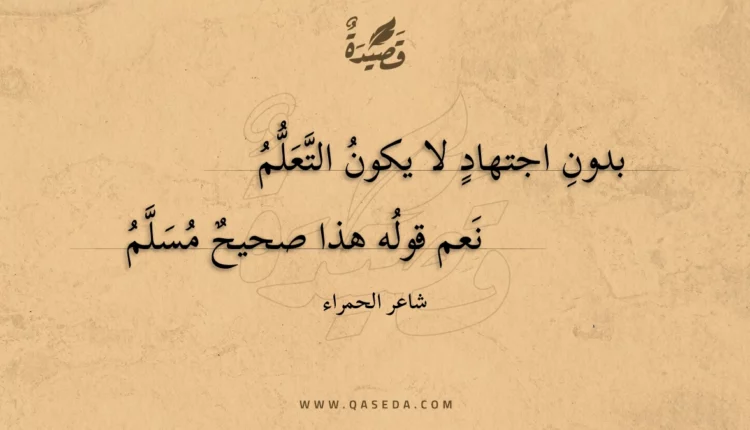 قَصِيدَةٌ
بدونِ اجتهادٍ لا يكونُ التَّعَلُّمُ
نَعم قولُه هذا صحيحٌ مُسَلَّمُ
شاعر الحمراء
WWW.QASEDA.COM